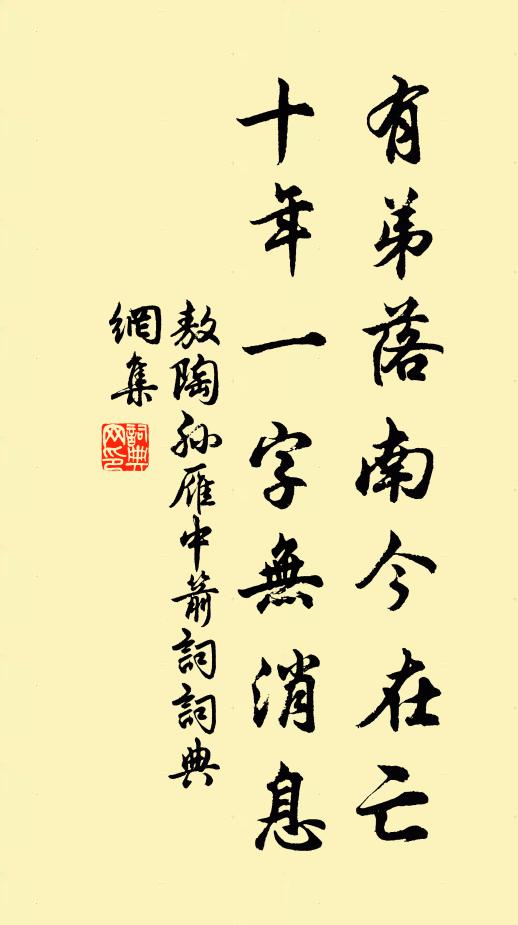 有弟落南今在亡
十年一字無消息
敖陶孙雁中箭詞詞典
網集
詞典网印